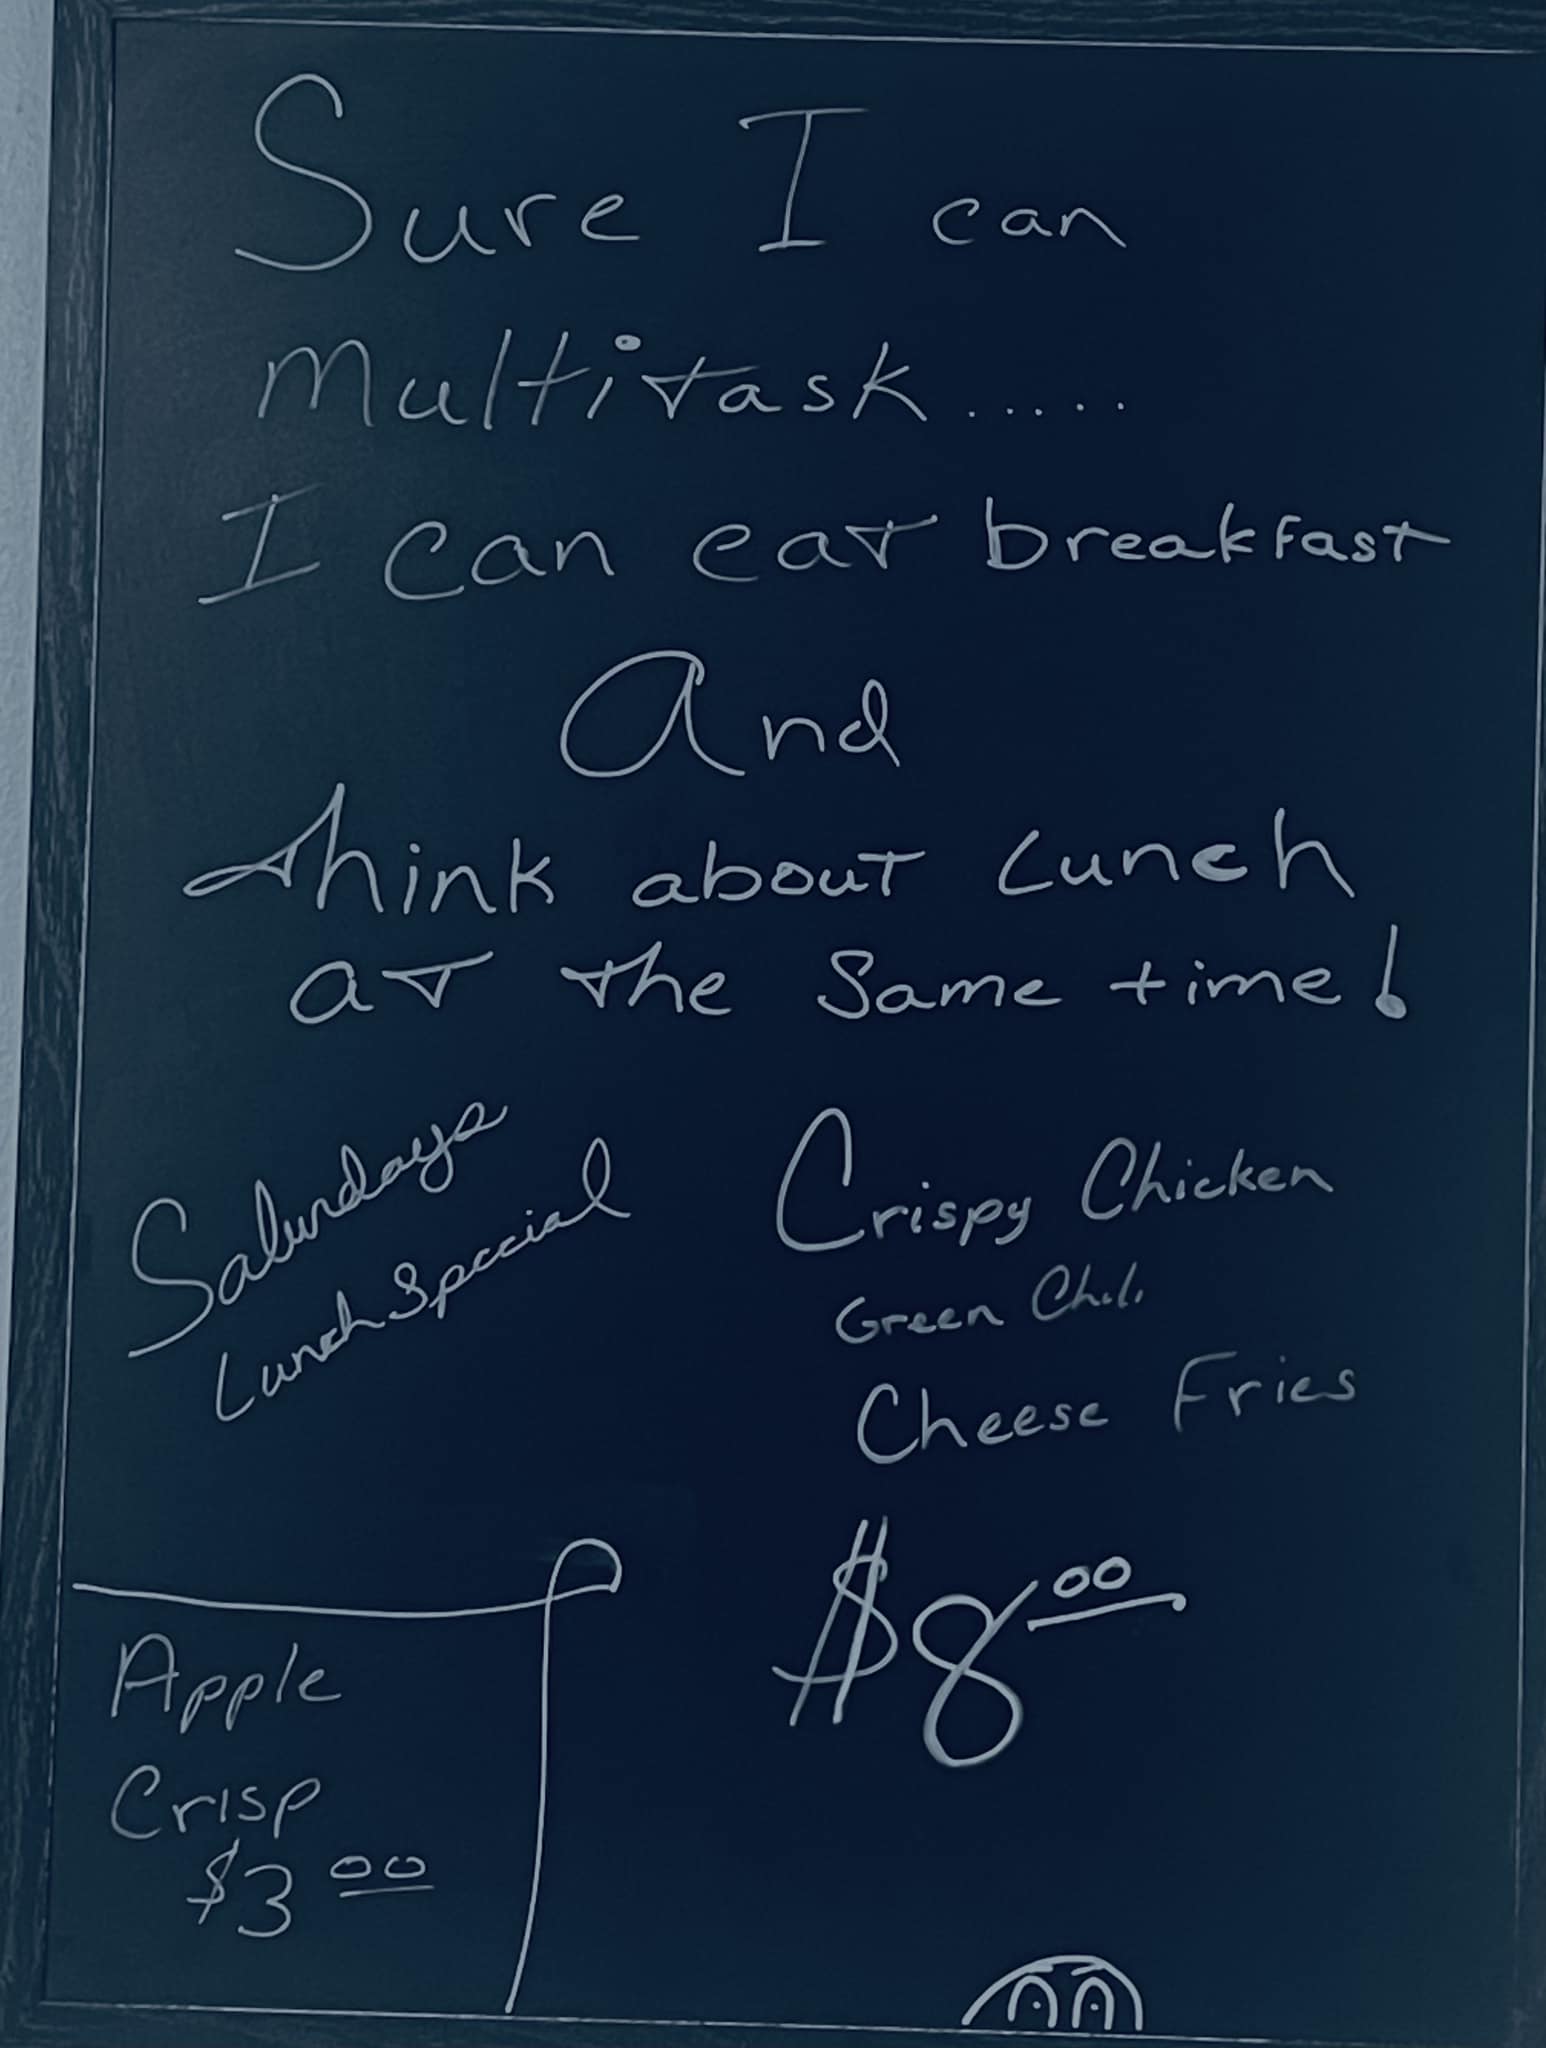 Sure I can
Multitask.....
I can eat breakfast
And
think about Lunch
at the Same time!
Saturdays
Lunch Special
Crispy Chicken
Green Chili
Cheese Fries
$8.00
Apple
Crisp
$3.00